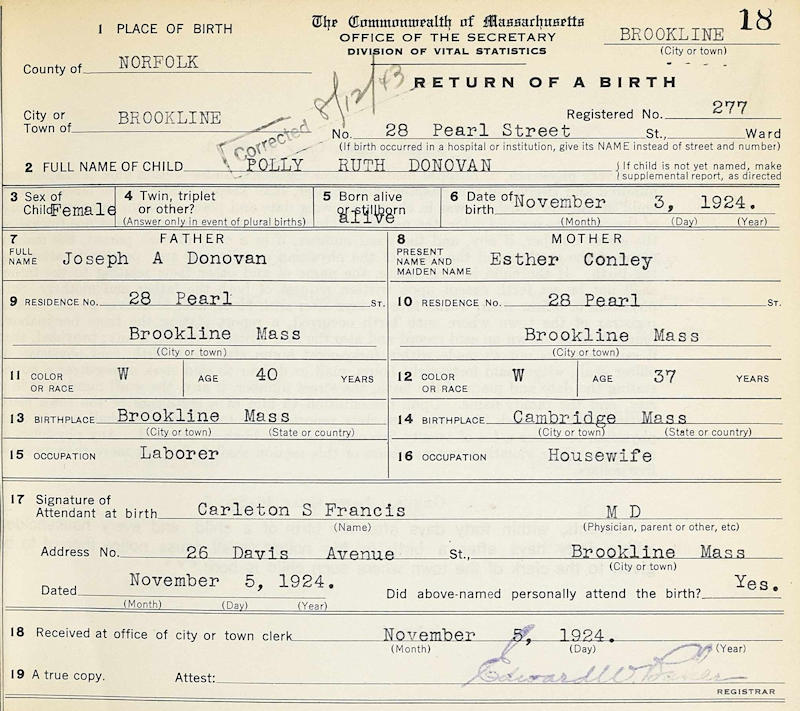 18
1 PLACE OF BIRTH
The Commonwealth of Massachusetts
OFFICE OF THE SECRETARY
DIVISION OF VITAL STATISTICS
BROOKLINE
(City or town)
County of NORFOLK
RETURN OF A BIRTH
City or Town of BROOKLINE
Corrected 8/12/43
Registered No. 277
No. 28 Pearl Street St., Ward
(If birth occurred in a hospital or institution, give its NAME instead of street and number)
2 FULL NAME OF CHILD POLLY RUTH DONOVAN
{If child is not yet named, make
supplemental report, as directed
3 Sex of Child Female
4 Twin, triplet or other?
(Answer only in event of plural births)
5 Born alive or stillborn alive
6 Date of birth November 3, 1924.
(Month) (Day) (Year)
7 FATHER
FULL NAME Joseph A Donovan
8 MOTHER
PRESENT NAME AND MAIDEN NAME Esther Conley
9 RESIDENCE No. 28 Pearl ST.
Brookline Mass
(City or town)
10 RESIDENCE No. 28 Pearl ST.
Brookline Mass
(City or town)
11 COLOR OR RACE W AGE 40 YEARS
12 COLOR OR RACE W AGE 37 YEARS
13 BIRTHPLACE Brookline Mass
(City or town) (State or country)
14 BIRTHPLACE Cambridge Mass
(City or town) (State or country)
15 OCCUPATION Laborer
16 OCCUPATION Housewife
17 Signature of Attendant at birth Carleton S Francis M D
(Name) (Physician, parent or other, etc)
Address No. 26 Davis Avenue St., Brookline Mass
(City or town)
Dated November 5, 1924.
(Month) (Day) (Year)
Did above-named personally attend the birth? Yes.
18 Received at office of city or town clerk November 5, 1924.
(Month) (Day) (Year)
19 A true copy. Attest: Edward W. Baker
REGISTRAR